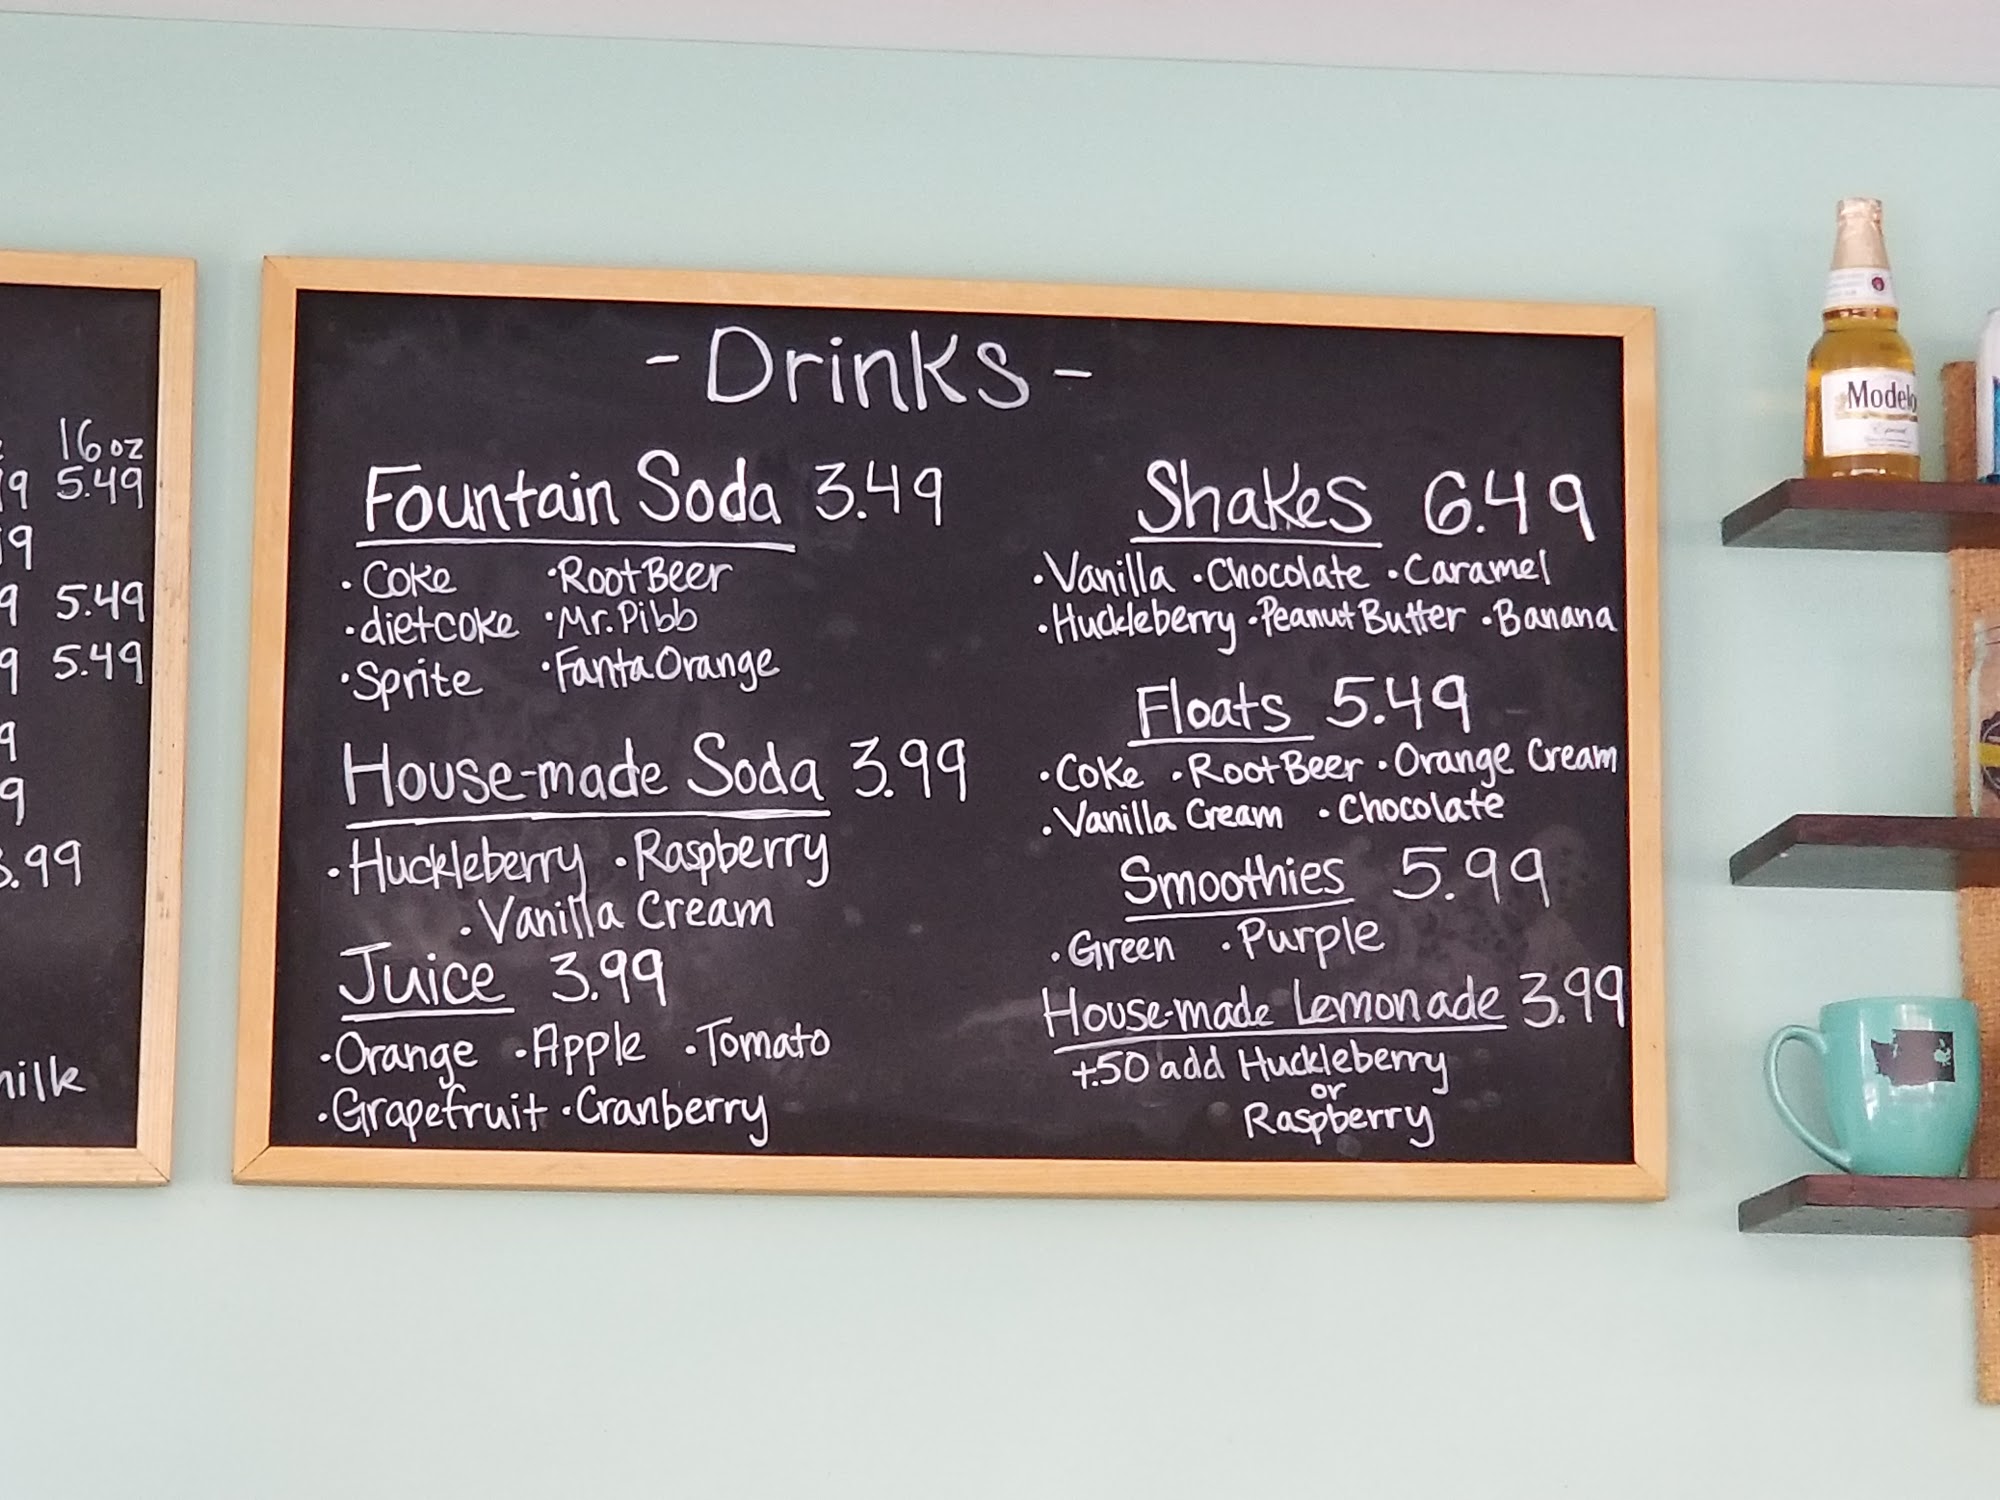 16 oz
5.49
5.49
5.49
- Drinks -
Fountain Soda 3.49
• Coke • Root Beer
• diet coke • Mr. Pibb
• Sprite • Fanta Orange
House-made Soda 3.99
• Huckleberry • Raspberry
• Vanilla Cream
Juice 3.99
• Orange • Apple • Tomato
• Grapefruit • Cranberry
Shakes 6.49
• Vanilla • Chocolate • Caramel
• Huckleberry • Peanut Butter • Banana
Floats 5.49
• Coke • Root Beer • Orange Cream
• Vanilla Cream • Chocolate
Smoothies 5.99
• Green • Purple
House-made Lemonade 3.99
+.50 add Huckleberry
or
Raspberry
Modelo
Especial